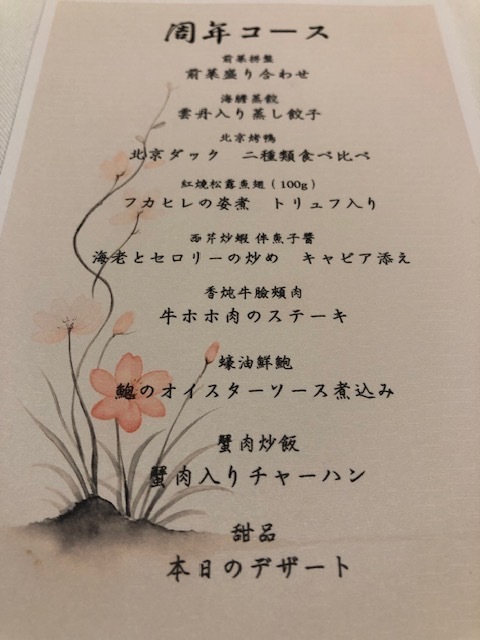 周年コース
前菜拼盤
前菜盛り合わせ
海膽蒸餃
雲丹入り蒸し餃子
北京烤鴨
北京ダック　二種類食べ比べ
紅燒松露魚翅（100g）
フカヒレの姿煮　トリュフ入り
西芹炒蝦 伴魚子醬
海老とセロリーの炒め　キャビア添え
香炖牛臉頰肉
牛ホホ肉のステーキ
蠔油鮮鮑
鮑のオイスターソース煮込み
蟹肉炒飯
蟹肉入りチャーハン
甜品
本日のデザート